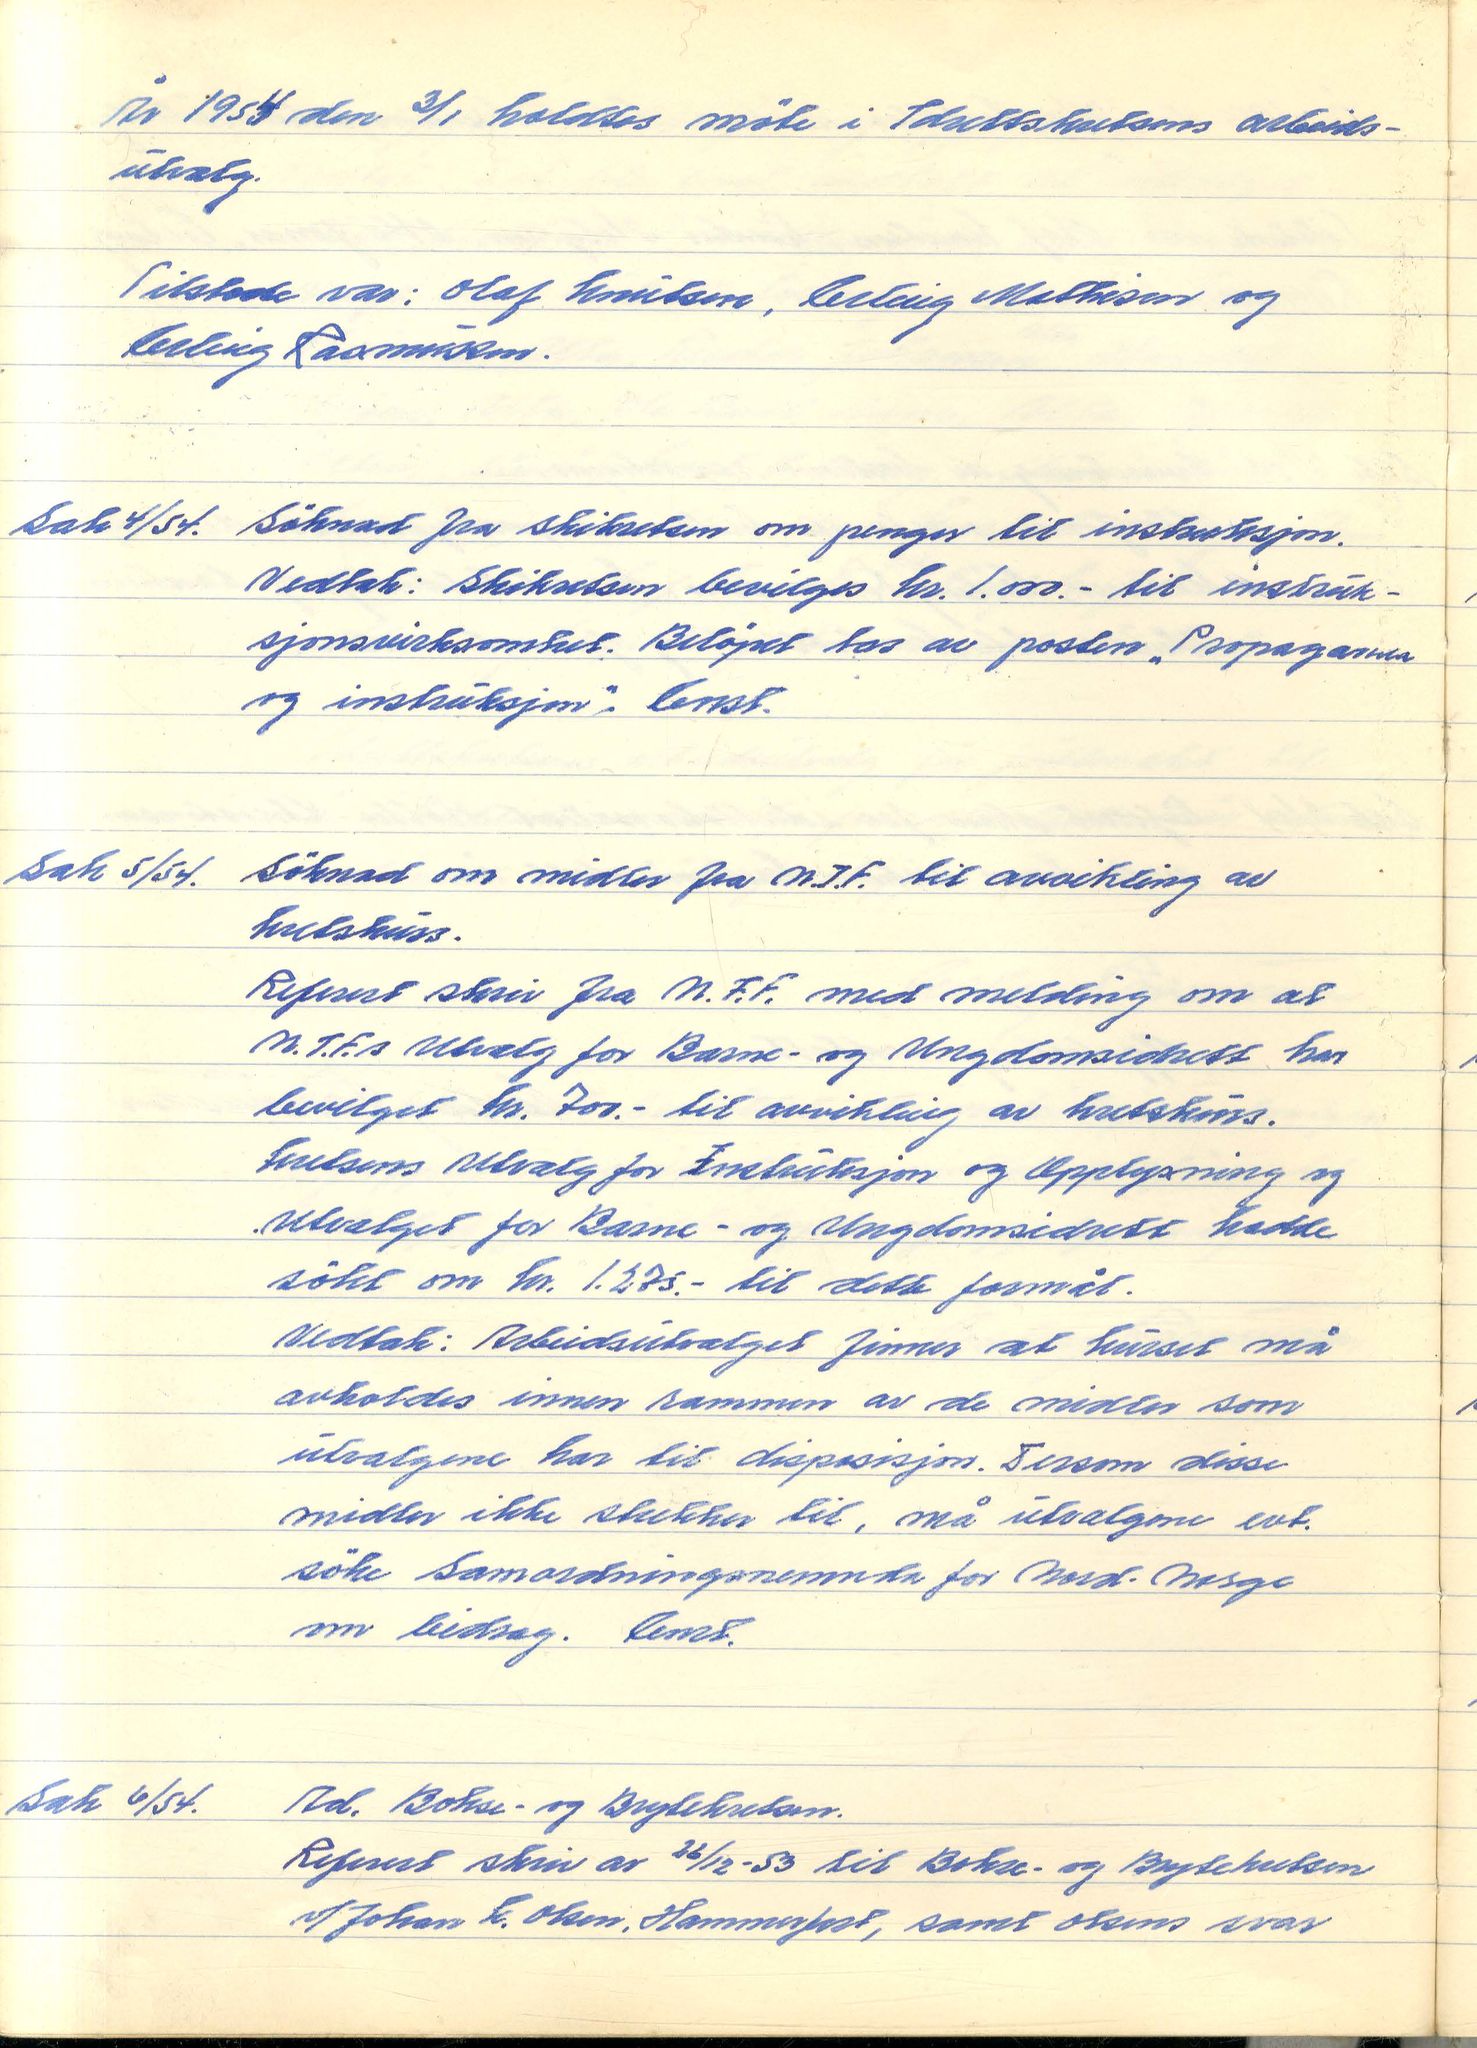 År 1954 den 3/1 holdtes möte i Idrettskretsens arbeids-
utvalg.
Tilstede var: Olaf Knutsen, Erling Mathisen og
Erling Rasmussen.
Sak 4/54. Söknad fra skikretsen om penger til instruksjon.
Vedtak: Skikretsen bevilges kr. 1.000.- til instruk-
sjonsvirksomhet. Belöpet tas av posten „Propaganda
og instruksjon". Enst.
Sak 5/54. Söknad om midler fra N.I.F. til avvikling av
kretskurs.
Referert skriv fra N.F.F. med melding om at
N.I.F.s Utvalg for Barne- og Ungdomsidrett har
bevilget kr. 700.- til avvikling av kretskurs.
Kretsens Utvalg for Instruksjon og Opplysning og
Utvalget for Barne- og Ungdomsidrett hadde
sökt om kr. 1.275.- til dette formål.
Vedtak: Arbeidsutvalget finner at kurset må
avholdes innen rammen av de midler som
utvalgene har til disposisjon. Dersom disse
midler ikke strekker til, må utvalgene evt.
söke Samordningsnemnda for Nord-Norge
om bidrag. Enst.
Sak 6/54. Ad. Bokse- og Brytekretsen.
Referert skriv av 28/12-53 til Bokse- og Brytekretsen
v/Johan E. Olsen, Hammerfest, samt Olsens svar